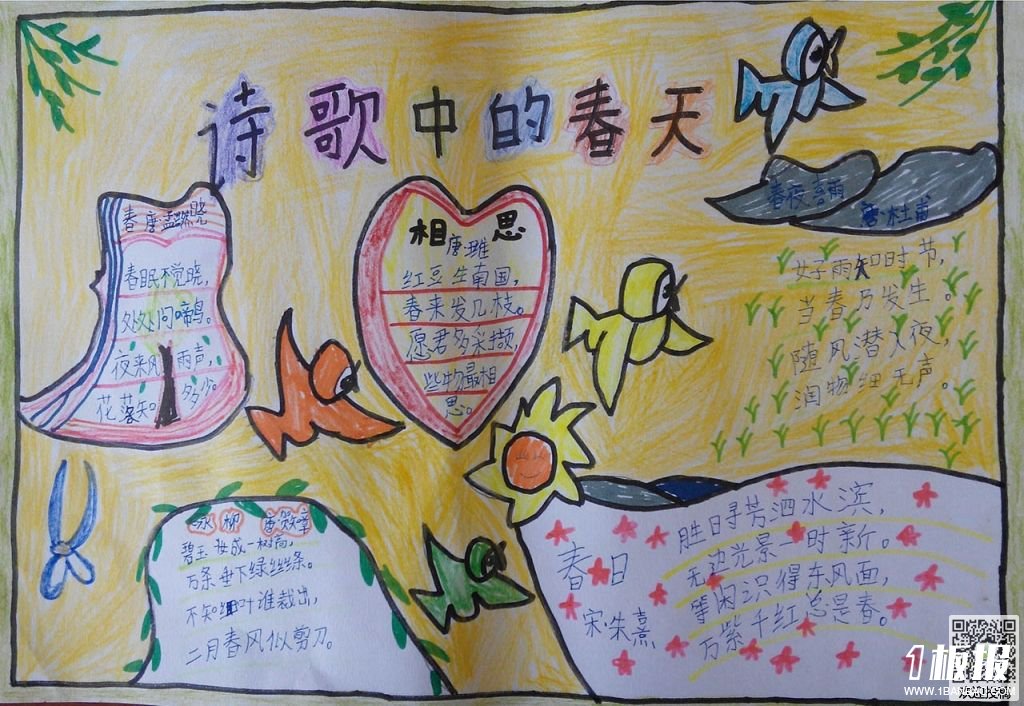 诗歌中的春天
春晓
唐·孟浩然
春眠不觉晓，
处处问啼鸟。
夜来风雨声，
花落知多少。
相思
唐·王维
红豆生南国，
春来发几枝。
愿君多采撷，
些物最相
思。
春夜喜雨
唐·杜甫
好雨知时节，
当春乃发生。
随风潜入夜，
润物细无声。
咏柳 唐·贺知章
碧玉妆成一树高，
万条垂下绿丝绦。
不知细叶谁裁出，
二月春风似剪刀。
春日
宋·朱熹
胜日寻芳泗水滨，
无边光景一时新。
等闲识得东风面，
万紫千红总是春。
1板报
WWW.1BANBAO.COM
欢迎投稿